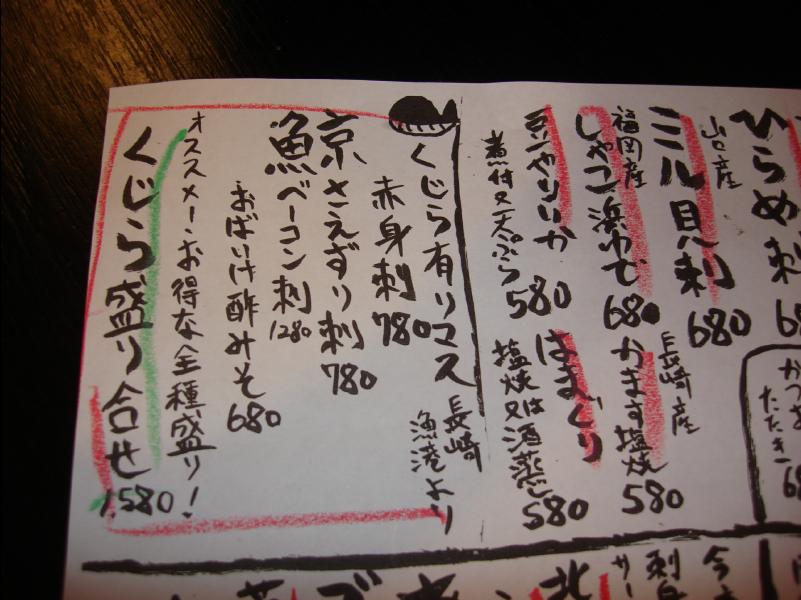 ひらめ刺
山口産
ミル貝刺
680
福岡産
しゃこ浜ゆで
680
長崎産
かます塩焼
580
煮付又天ぷら
580
はまぐり
塩焼又は酒蒸し
580
くじら有リマス
長崎
漁港より
赤身刺
780
京さえずり刺
780
魚ベーコン刺
1280
おばいけ酢みそ
680
オススメーお得な全種盛り!
くじら盛り合せ
1,580
かつお
たたき